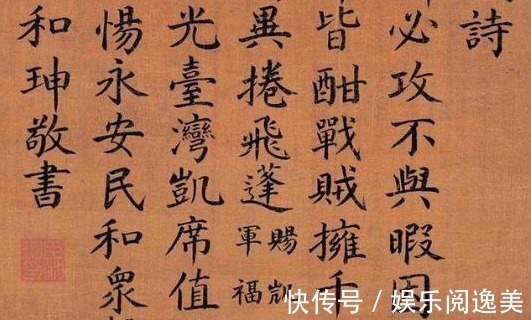 詩
必攻不與暇因
皆酣戰賊擁千
異捲飛蓬
賜凱
軍福
光臺灣凱席值
惕永安民和衆
和珅敬書
快传号 / 娱乐阅逸美